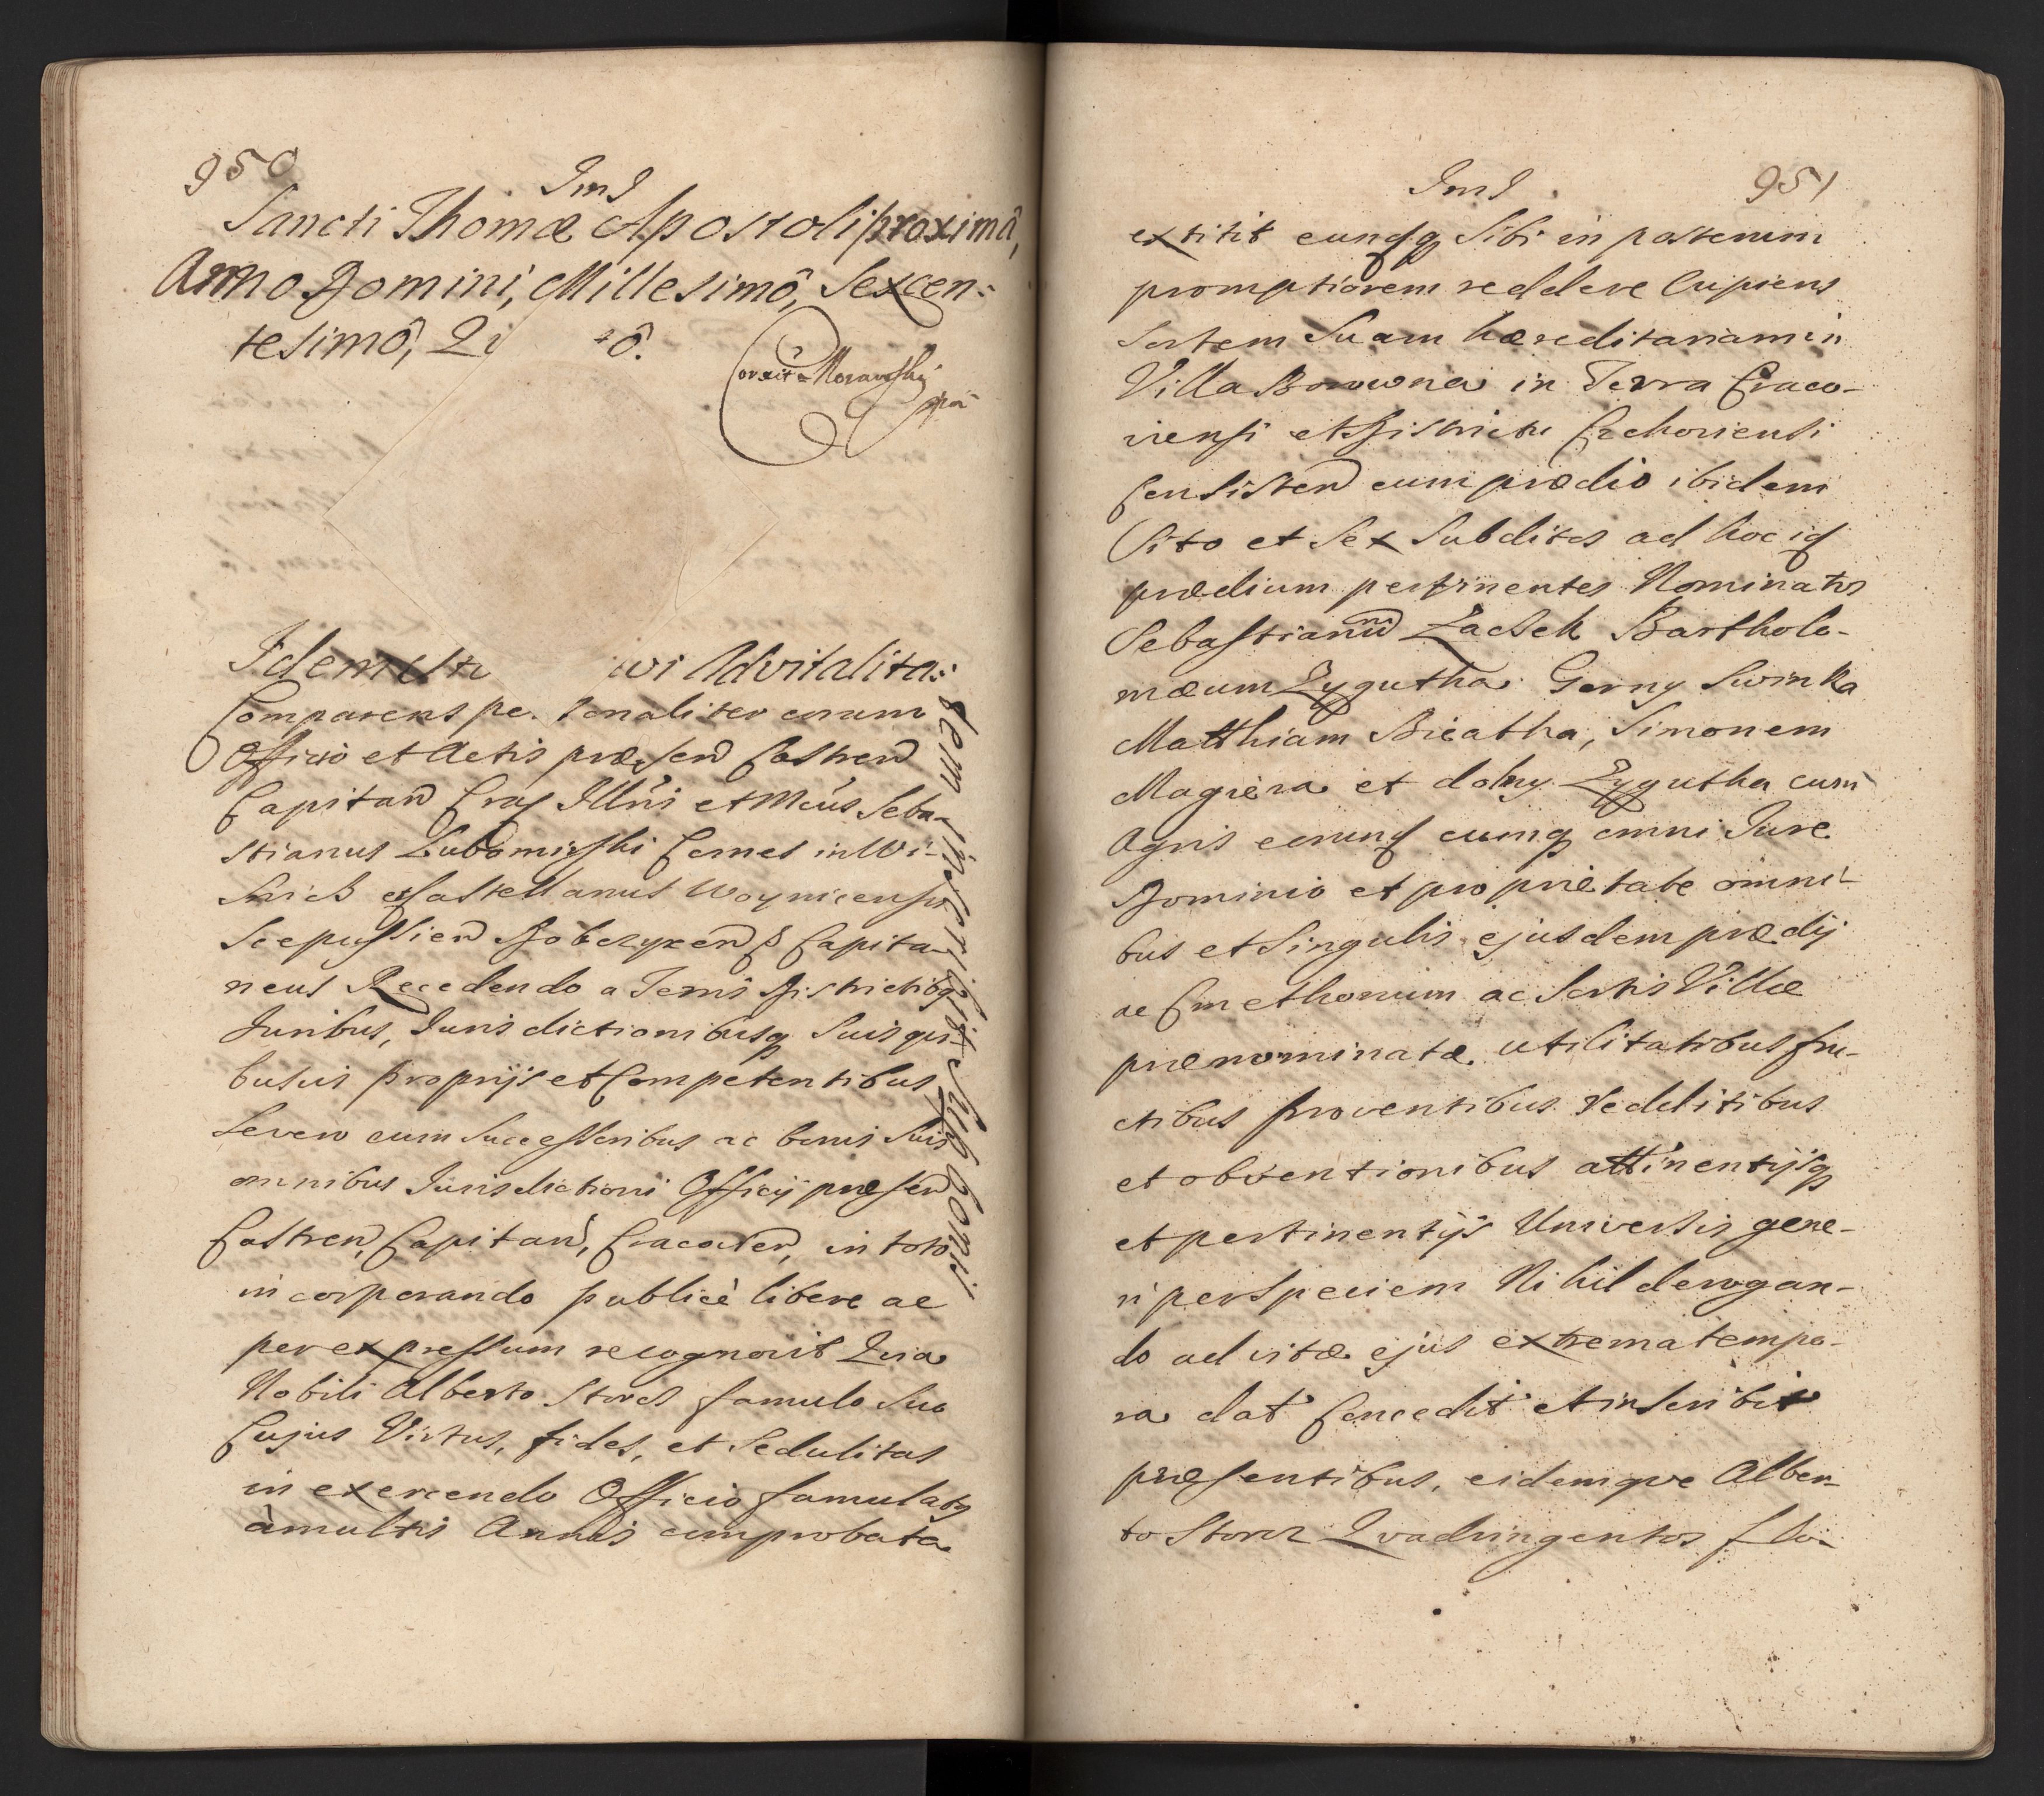 950
Sancti Thomæ Apostoli proximâ,
Anno Domini, Millesimô, Sexcen:
tesimô, Qi ô.
Corexit Moravski
Idem
wi Advitalita:
tem inscribit Sub bonis
Comparens personaliter coram
Officio et Actis præsen Castren
Capitan Crac Illris et Mcus Seba-
stianus Lubomirski Comes in Wi-
snicz Castellanus Woynicensis
Scepussien Dobczycen Capita-
neus Recedendo a Terris Districtibq
Juribus, Jurisdictionibusq Suis qui-
busvis proprijs et Competentibus
Severo cum Successoribus ac bonis Suis
omnibus Jurisdictioni Officij præsen
Castren, Capitan, Cracovien, in toto
incorporando publicè libere ac
per expressum recognovit Quia
Nobili Alberto Storcz famulo Suo
Cujus Virtus, fides, et Sedulitas
in exercendo Officio famulatq
à multis Annis comprobata
951
extitit eunqq Sibi in posterum
promptiorem reddere Cupiens
Sortem Suam hæreditariam in
Villa Borowna in Terra Craco-
viensi et Districtu Czchoviensi
Consisten cum prædio ibidem
Sito et Sex Subditos ad hoc
prædium pertinentes Nominatos
Sebastianum Zaczek Bartholo-
mæum Zygutha Gorny Swinka
Matthiam Bieatha, Simonem
Magiera et dolny Zygutha cum
Agris eorum cumq omni Jure
Dominio et proprietate omni-
bus et Singulis ejusdem prædij
ac Cmethonum ac Sortis Villæ
prænominatæ utilitatibus fru-
ctibus proventibus redditibus
et obventionibus attinentijsq
et pertinentijs Universis gene-
ri per Speciem Nihil derogan-
do ad vitæ ejus extrema tempo-
ra dat Concedit et inscribit
præsentibus, eidemque Alber-
to Storcz Quadringentos flo-